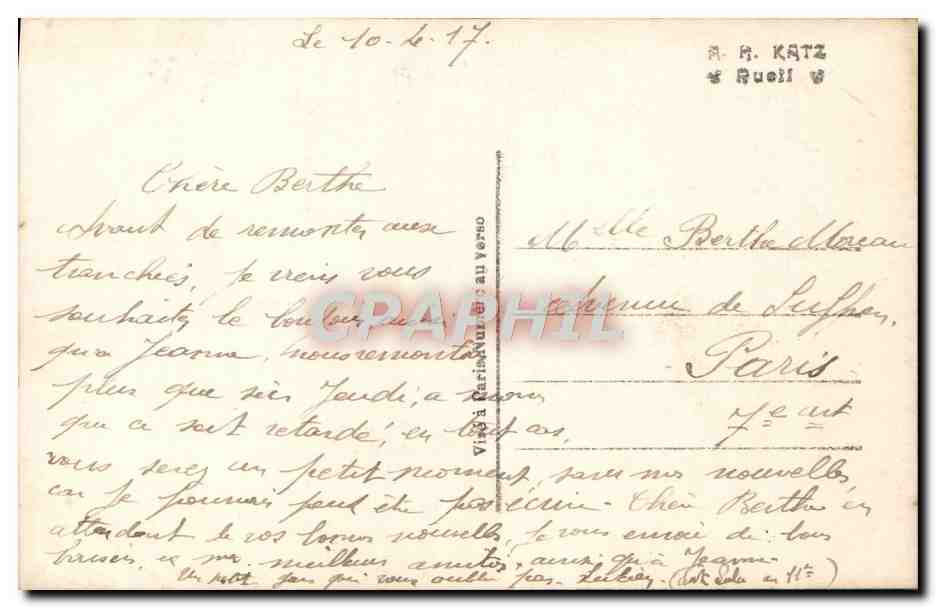 Le 10-4-17.
R. R. KATZ
Rueil
Chère Berthe
Avant de remonter aux
tranchées, je viens vous
souhaiter le bonjour ainsi
qu'a Jeanne, nous remontons
plus que sur Jeudi, a moins
que ce soit retardé, en tout cas,
vous serez un petit moment, sans mes nouvelles,
car je pourrais peut être pas écrire. Chère Berthe en
attendant le vos bonnes nouvelles, je vous envoie de bons
baisers, et mes meilleurs amitiés, ainsi qu'a Jeanne
Un petit gars qui vous oublie pas. Lucien
Visé à Paris Numéro au verso
Mlle Berthe Moreau
avenue de Suffren,
Paris
7e art
CPAPHIL